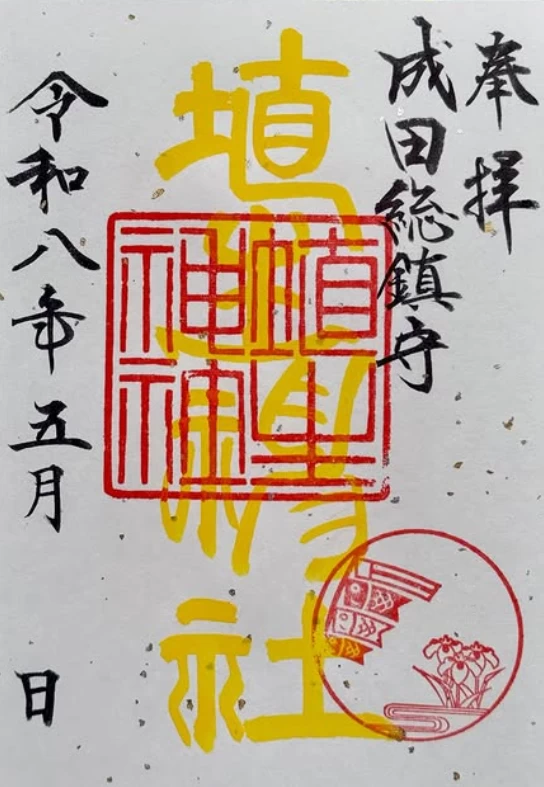 奉拝
成田総鎮守
埴生神社
埴生
神社
令和八年五月 日